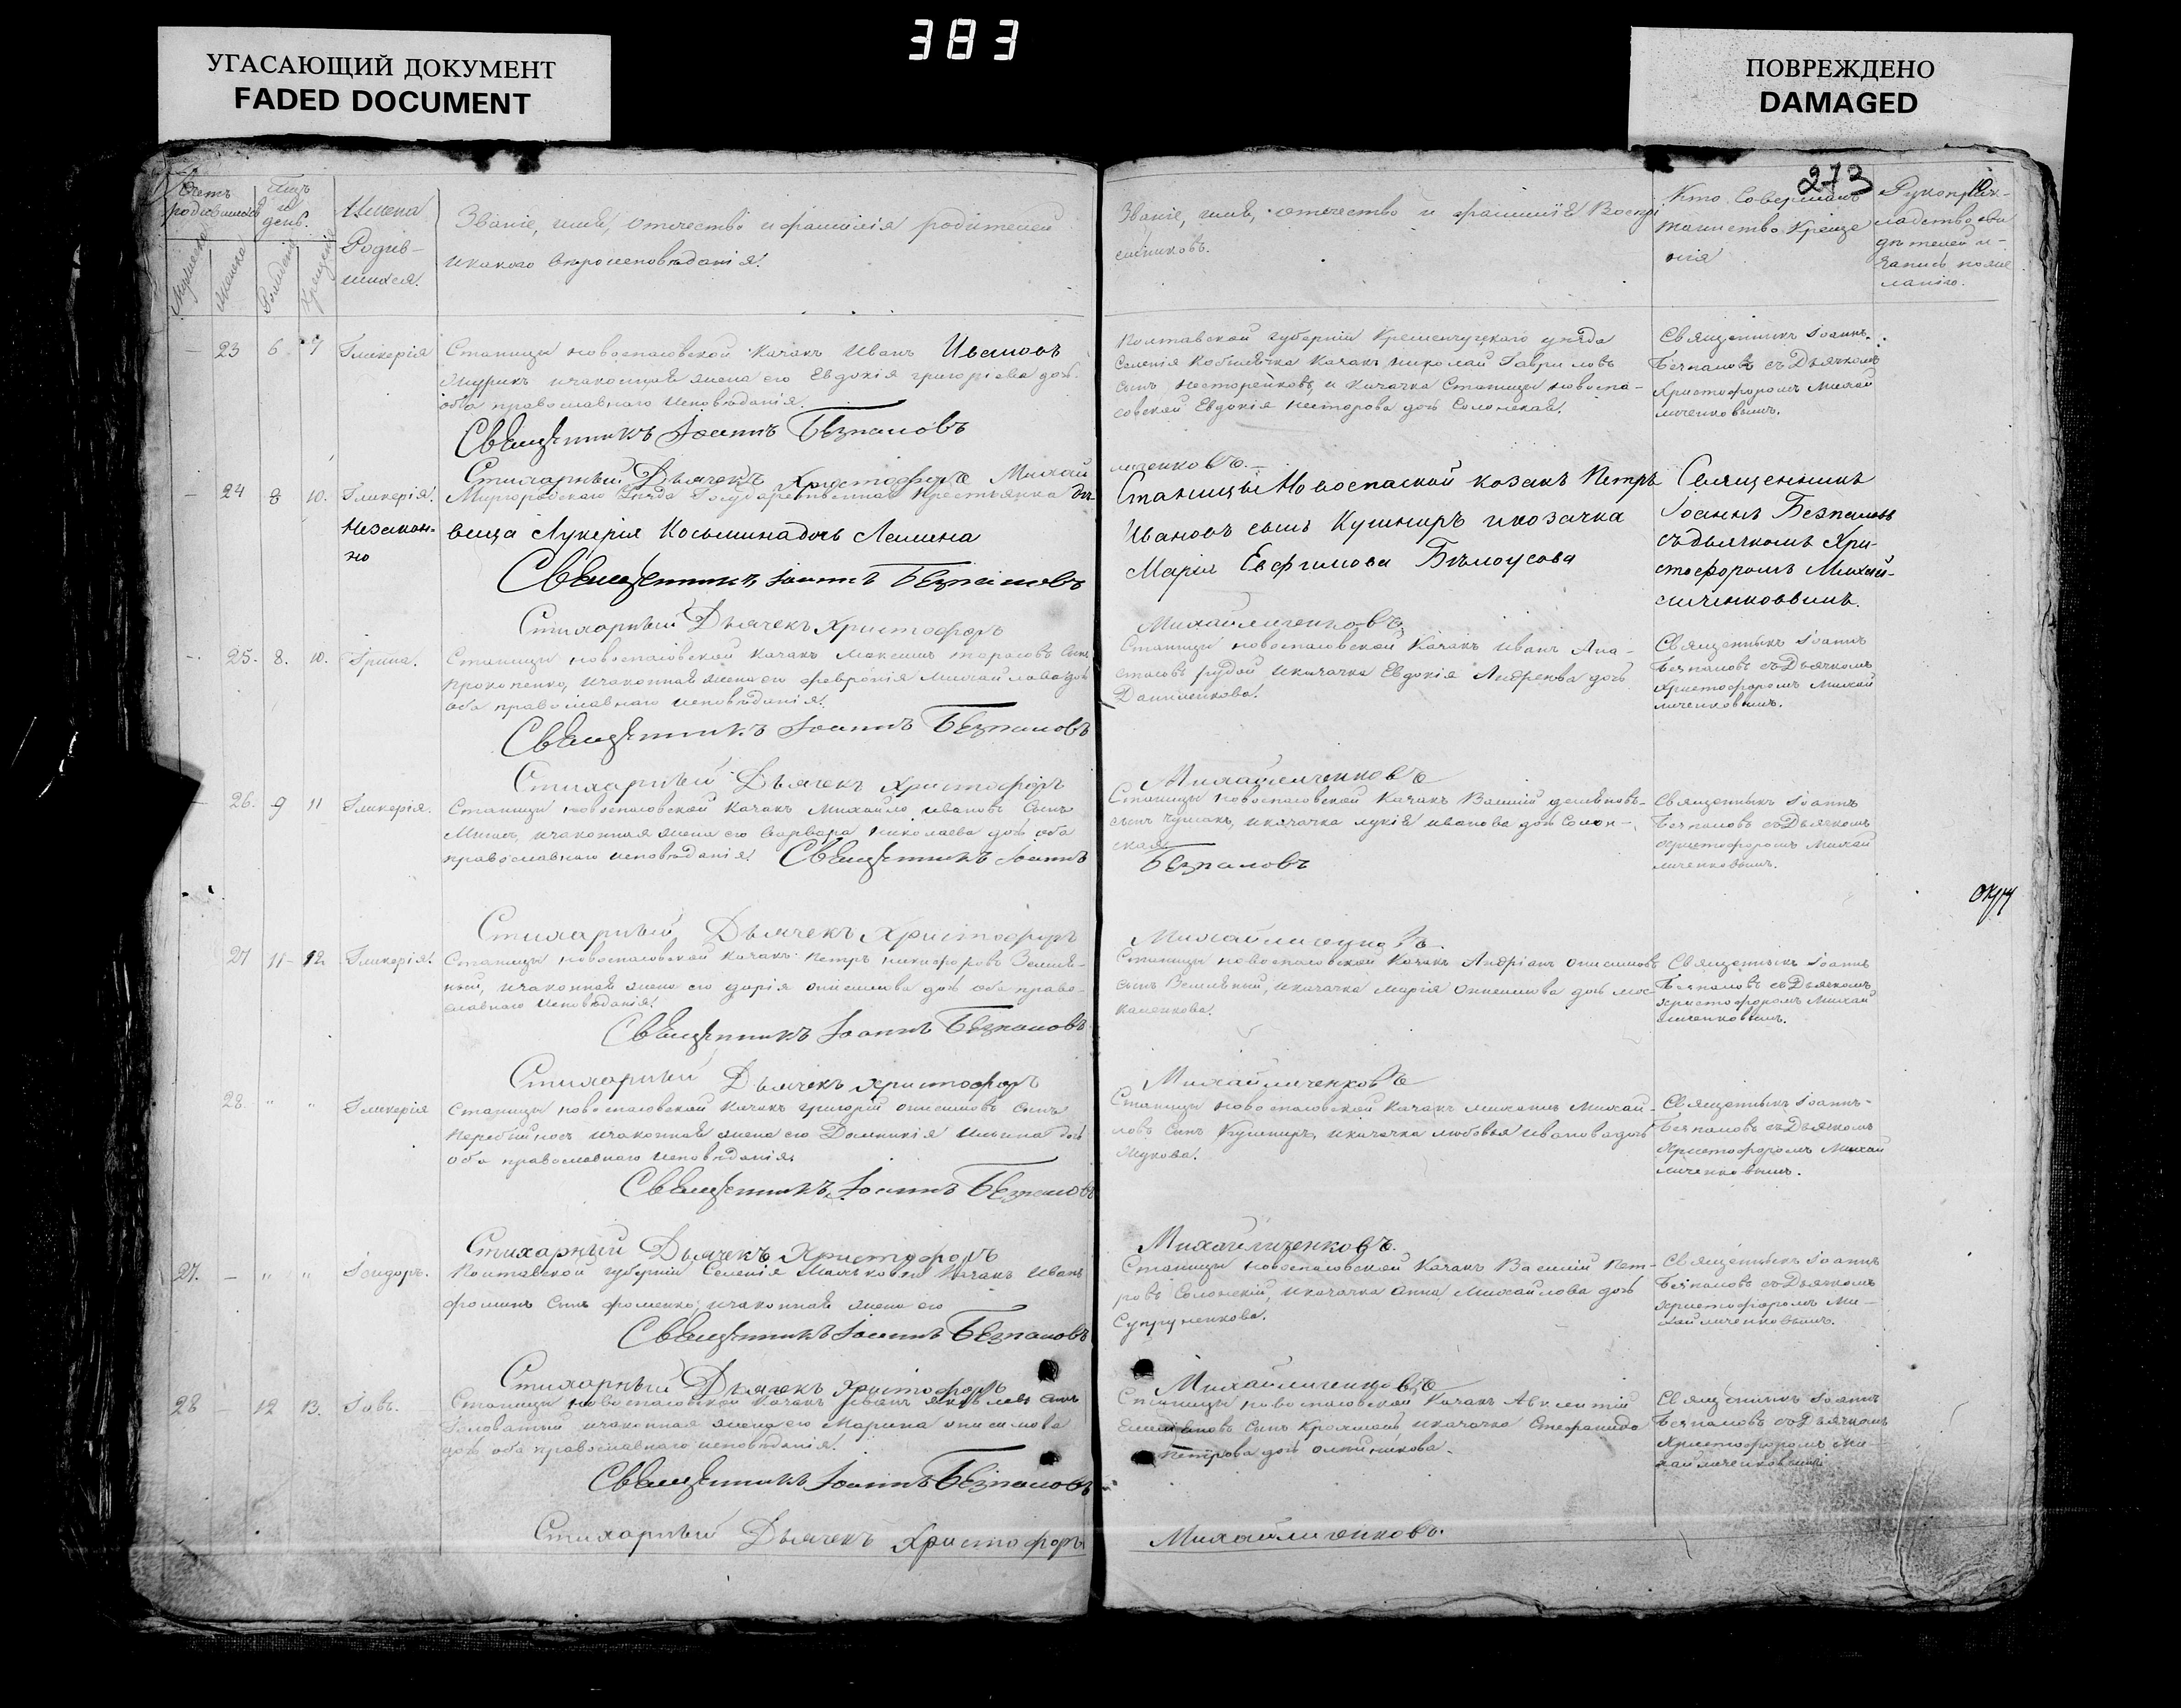 383
УГАСАЮЩИЙ ДОКУМЕНТ
FADED DOCUMENT
ПОВРЕЖДЕНО
DAMAGED
273
Счетъ родившихся
Мужеска
Женска
день.
Рожденія
Крещенія
Имена
Родив-
шихся.
Званіе, имя, отчество и фамилія родителей
и какого вѣроисповѣданія.
Званіе, имя, отчество и фамилія Воспрі
емниковъ.
Кто Совершалъ
таинство Креще
нія
Рукоприк-
ладство сви
дѣтелей и
запись по же
ланію.
— 23 6 7 Гликерія
Станицы новоспасовской Казакъ Иванъ Ивановъ
и законная жена его Евдокія григоріева доч.
оба православнаго исповѣданія.
Священникъ Іоаннъ Безпаловъ
Стихарный Дьячекъ Христофоръ Михай
личенковъ.
Полтавской губерніи Кременчугскаго уѣзда
Селенія Казакъ николай Гавриловъ
сынъ Несторенковъ, и Казачка Станицы новоспа-
совской Евдокія несторова доч Солонская.
Священникъ Іоаннъ
Безпаловъ съ Дьячкомъ
Христофоромъ Михай
личенковымъ.
— 24 8 10. Гликерія.
Незакон-
но
Миргородскаго Уѣзда Государственная Крестьянка дѣ
вица Лукерія Косьмина дочь Лешена
Священникъ Іоаннъ Безпаловъ
Стихарный Дьячекъ Христофоръ
Михайличенковъ
Станицы Новоспаской козакъ Петръ
Ивановъ сынъ Кушниръ и козачка
Марія Евфимова Бѣлоусова
Священникъ
Іоаннъ Безпаловъ
съ дьячкомъ Хри-
стофоромъ Михай-
личенковымъ.
25. 8. 10. Ірина.
Станицы новоспасовской Казакъ Максимъ тарасовъ Сынъ
Прокопенко, и законная жена его февронія Михайлова доч
оба православнаго исповѣданія.
Священникъ Іоаннъ Безпаловъ
Стихарный Дьячекъ Христофоръ
Михайличенковъ
Станицы новоспасовской Казакъ Иванъ Ана-
стасовъ рудой и казачка Евдокія Андреева доч
Даниленкова.
Священникъ Іоаннъ
Безпаловъ съ Дьячкомъ
Христофоромъ Михай
личенковымъ.
26. 9 11 Гликерія.
Станицы новоспасовской Казакъ Михайло ивановъ Сынъ
и законная жена его Варвара николаева доч оба
православнаго исповѣданія. Священникъ Іоаннъ
Безпаловъ
Стихарный Дьячекъ Христофоръ
Станицы новоспасовской Казакъ Василій
сынъ Чумакъ, и казачка лукія иванова доч Солон-
ская.
Священникъ Іоаннъ
Безпаловъ съ Дьячкомъ
христофоромъ Михай
личенковымъ.
окру
27 11 12 Гликерія.
Станицы новоспасовской Казакъ Петръ никифоровъ Землян-
ный, и законная жена его дарія онисимова доч оба право-
славнаго исповѣданія.
Священникъ Іоаннъ Безпаловъ
Стихарный Дьячекъ христофоръ
Михайличенковъ
Станицы новоспасовской Казакъ Андріанъ онисимовъ
сынъ и казачка марія Онисимова доч мос-
каленкова.
Священникъ Іоаннъ
Безпаловъ съ Дьячкомъ
христофоромъ Михай
личенковымъ.
28 " " Гликерія
Станицы новоспасовской Казакъ григорій онисимовъ Сынъ
Перебійносъ и законная жена его Домникія Ильина доч
оба православнаго исповѣданія.
Священникъ Іоаннъ Безпаловъ
Стихарный Дьячекъ Христофоръ
Михайличенковъ.
Станицы новоспасовской Казакъ Михай-
ловъ Сынъ Кушниръ, и казачка любовья ивановна доч
Жукова.
Священникъ Іоаннъ
Безпаловъ съ Дьячкомъ
Христофоромъ Михай
личенковымъ.
27. — " " Ісидоръ.
Полтавской губерніи Селенія Казакъ Иванъ
фоминъ Сынъ фоменко, и законная жена его
Священникъ Іоаннъ Безпаловъ
Стихарный Дьячекъ Христофоръ
Михайличенковъ
Станицы новоспасовской Казакъ Василій Пет-
ровъ Солонскій, и казачка Анна Михайлова доч
Супруненкова.
Священникъ Іоаннъ
Безпаловъ съ Дьячкомъ
христофоромъ Ми-
хайличенковымъ.
28 — 12 13. Іовъ.
Станицы новоспасовской Казакъ Иванъ яковлевъ сынъ
Головатый и законная жена его Марина онисимова
доч оба православнаго исповѣданія.
Священникъ Іоаннъ Безпаловъ
Стихарный Дьячекъ Христофоръ
Михайличенковъ.
Станицы новоспасовской Казакъ Авксентій
Сынъ и казачка Стефанида
Петрова доч олейникова.
Священникъ Іоаннъ
Безпаловъ съ Дьячкомъ
Христофоромъ Ми
хайличенковымъ